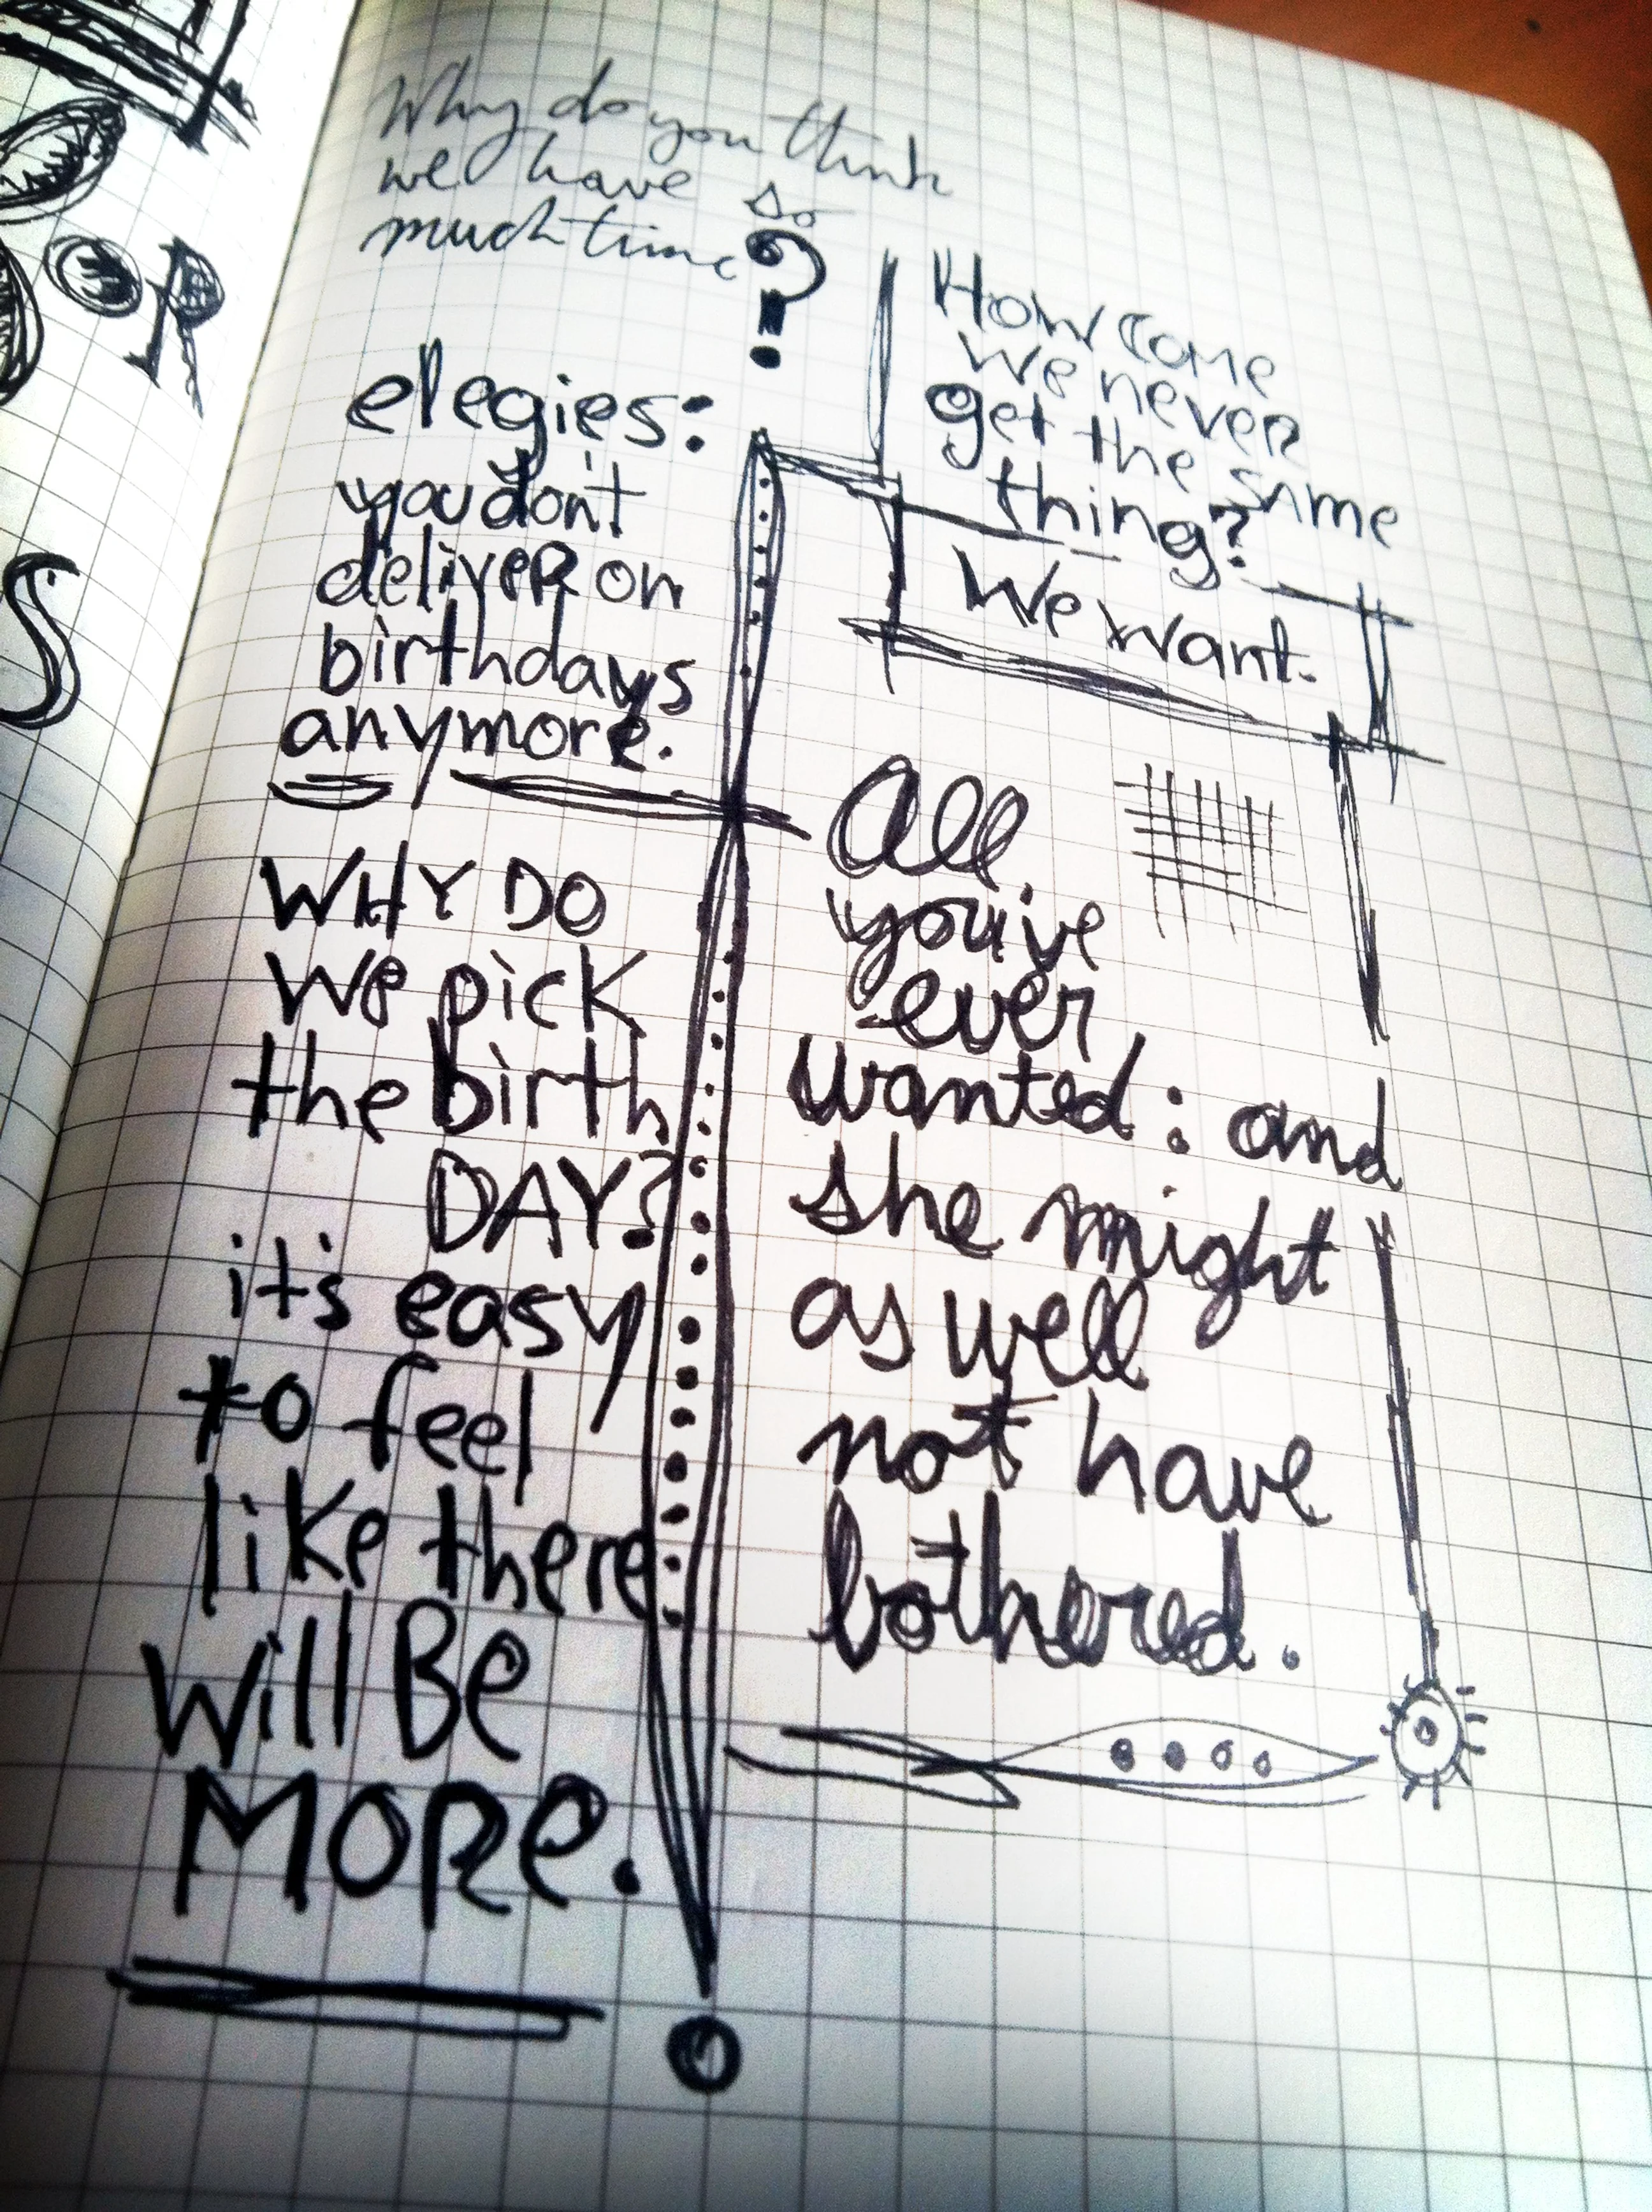 OR
S
Why do you think
we have so
much time?
elegies:
you don't
deliver on
birthdays
anymore.
WHY DO
We pick
the birth
DAY?
it's easy
to feel
like there
Will Be
MORe.
How Come
We never
get the same
thing?
We want.
All
you've
ever
wanted: and
she might
as well
not have
bothered.